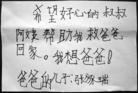 希望好心的叔叔
阿姨帮助我救爸爸
回家。我想爸爸!
爸爸的儿子:张